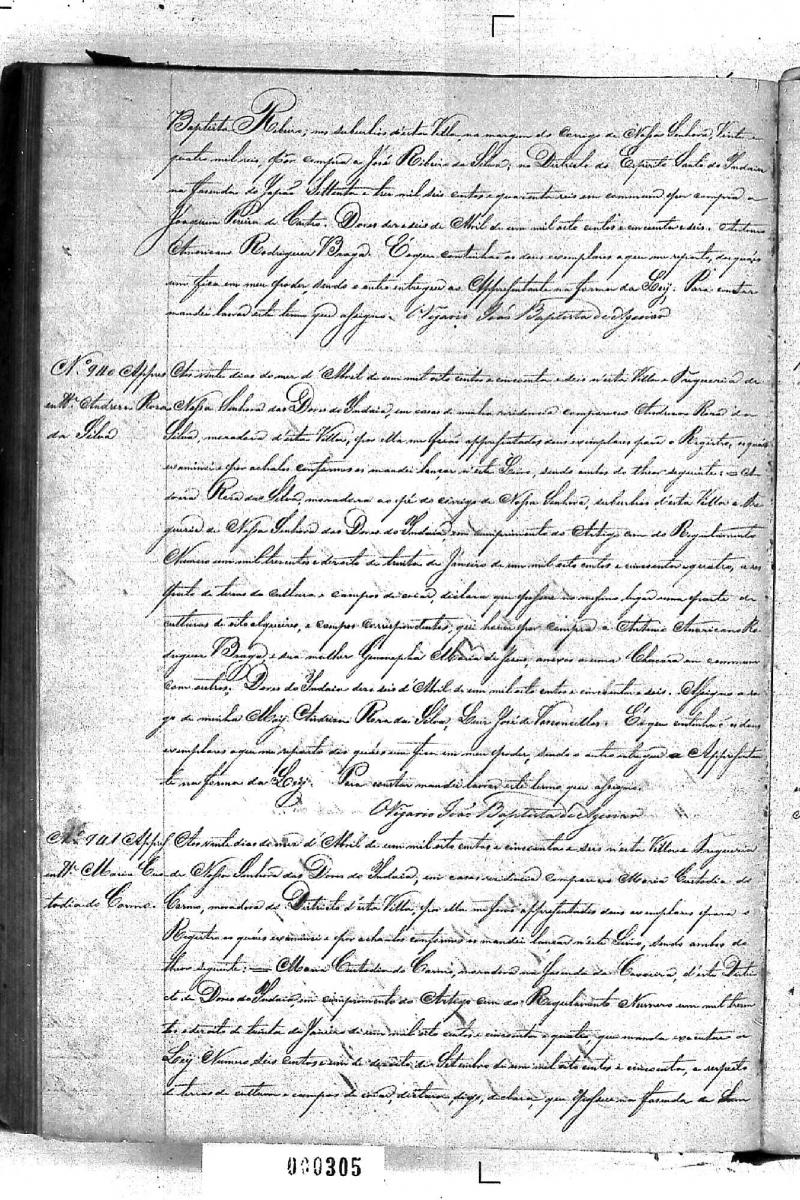 Baptista Ribeiro; nos suburbios d'esta Villa, na margem do Corrigo de Nossa Senhora, Vinte e
quatro mil reis, por compra a José Ribeiro da Silva; no Districto do Espirito Santo do Indaia
na fasenda do Japão Settenta e tres mil seis centos e quarenta reis em commum por compra a
Joaquim Pereira de Castro. Dores deseseis de Abril de um mil oito centos e cincoenta e seis. Antonio
Americano Rodrigues Braga. E o que continhão os dous exemplares a que me reporto, dos quaes
um fica em meu poder sendo o outro entregue ao Appresentante na forma da Ley. Para constar
mandei lavrar este termo que assigno. O Vigario João Baptista de
N.º 940 Appres
em tº Andreza Roza
da Silva
Aos vinte dias do mez d'Abril de um mil oito centos e cincoenta e seis n'esta Villa e Freguezia de
Nossa Senhora das Dores do Indaia, em casas de minha residencia compareceo Andreza Roza da
Silva, moradora d'esta Villa, por ella me forão appresentados dous exemplares para o Registro, os quaes
examinei e por achalos conformes os mandei lançar n'este Livro, sendo ambos do theor seguinte: = An
dreza Roza da Silva, moradora ao pé do corrigo de Nossa Senhora, suburbios d'esta Villa e Fre
guezia de Nossa Senhora das Dores do Indaia, em cumprimento do Artigo cem do Regulamento
Numero um mil tresentos e desoito de trinta de Janeiro de um mil oito centos e cincoenta e quatro, a res
peito de terras de cultura e campos de criar, declara que possue no mesmo lugar uma parte de
culturas de oito alqueires, e campos correspondentes, que houve por compra a Antonio Americano Ro
drigues Braga e sua mulher Maria de Jesus, anexos a uma Chacara em commum
com outros. Dores do Indaia deseseis d'Abril de um mil oito centos e cincoenta e seis. Assigno a ro
go de minha May Andreza Roza da Silva, Luis José de Vasconcellos. E o que continhão os dous
exemplares a que me reporto dos quaes um fica em meu poder, sendo o outro entregue a Appresentan
te na forma da Ley. Para constar mandei lavrar este termo, que assigno.
O Vigario João Baptista de
N.º 941 Appres
em tº Maria Cus
todia do Carmo.
Aos vinte dias do mez d'Abril de um mil oito centos e cincoenta e seis n'esta Villa e Freguezia
de Nossa Senhora das Dores do Indaia, em casas residencia compareceo Maria Custodia do
Carmo, moradora do Districto d'esta Villa, por ella me forão appresentados dous exemplares para o
Registro os quaes examinei e por achalos conformes os mandei lançar n'este Livro, sendo ambos do
theor seguinte: = Maria Custodia do Carmo, moradora na fasenda da, d'este Distri
cto de Dores do Indaia, em cumprimento do Artigo cem do Regulamento Numero um mil tresen
tos e desoito de trinta de Janeiro de um mil oito centos e cincoenta e quatro, que manda executar a
Ley Numero seis centos e um de desoito de Setembro de um mil oito centos e cincoenta, a respeito
de terras de cultura e campos de criar, digo, declara, que possue na fasenda da
000305